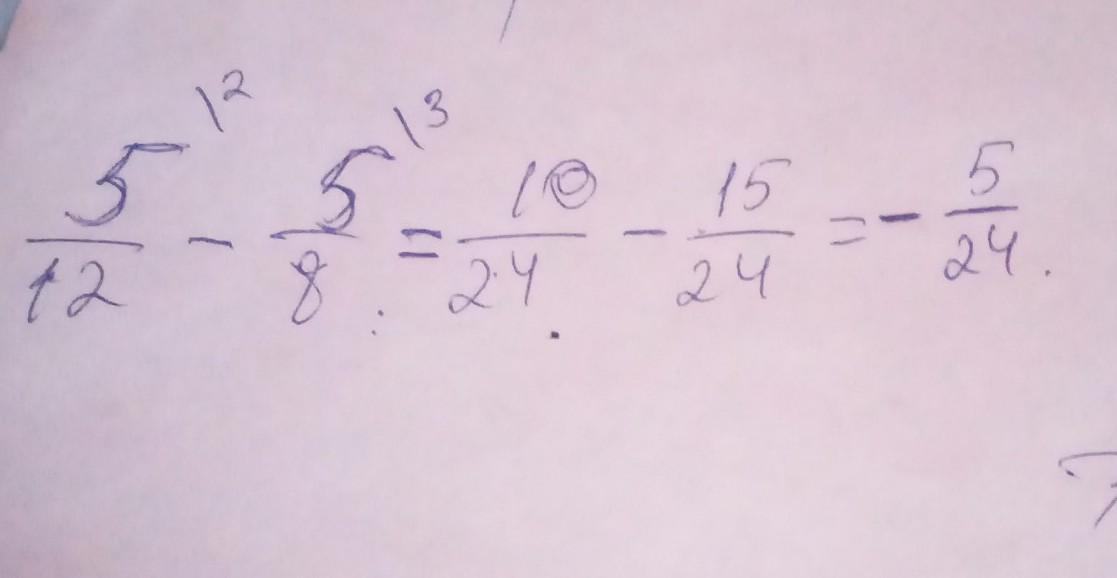 5/12 \2 - 5/8 \3 = 10/24 - 15/24 = - 5/24.